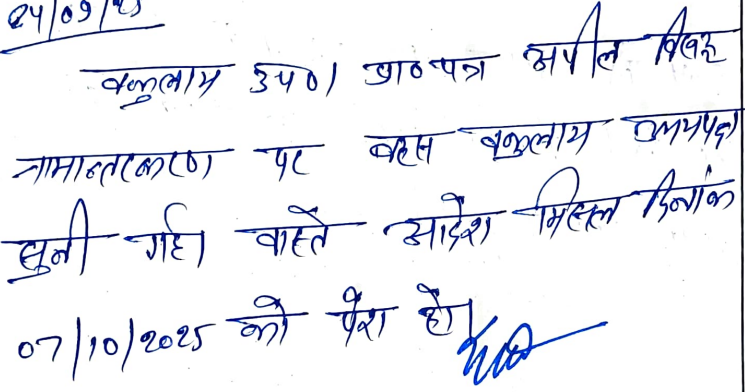 24/09/25
वकुलाय उप०। प्रा०पत्र अपील विरुद्ध
नामान्तरकरण पर बहस वकुलाय उभयपक्ष
सुनी गई। वास्ते आदेश मिसल दिनांक
07/10/2025 को पेश हो।